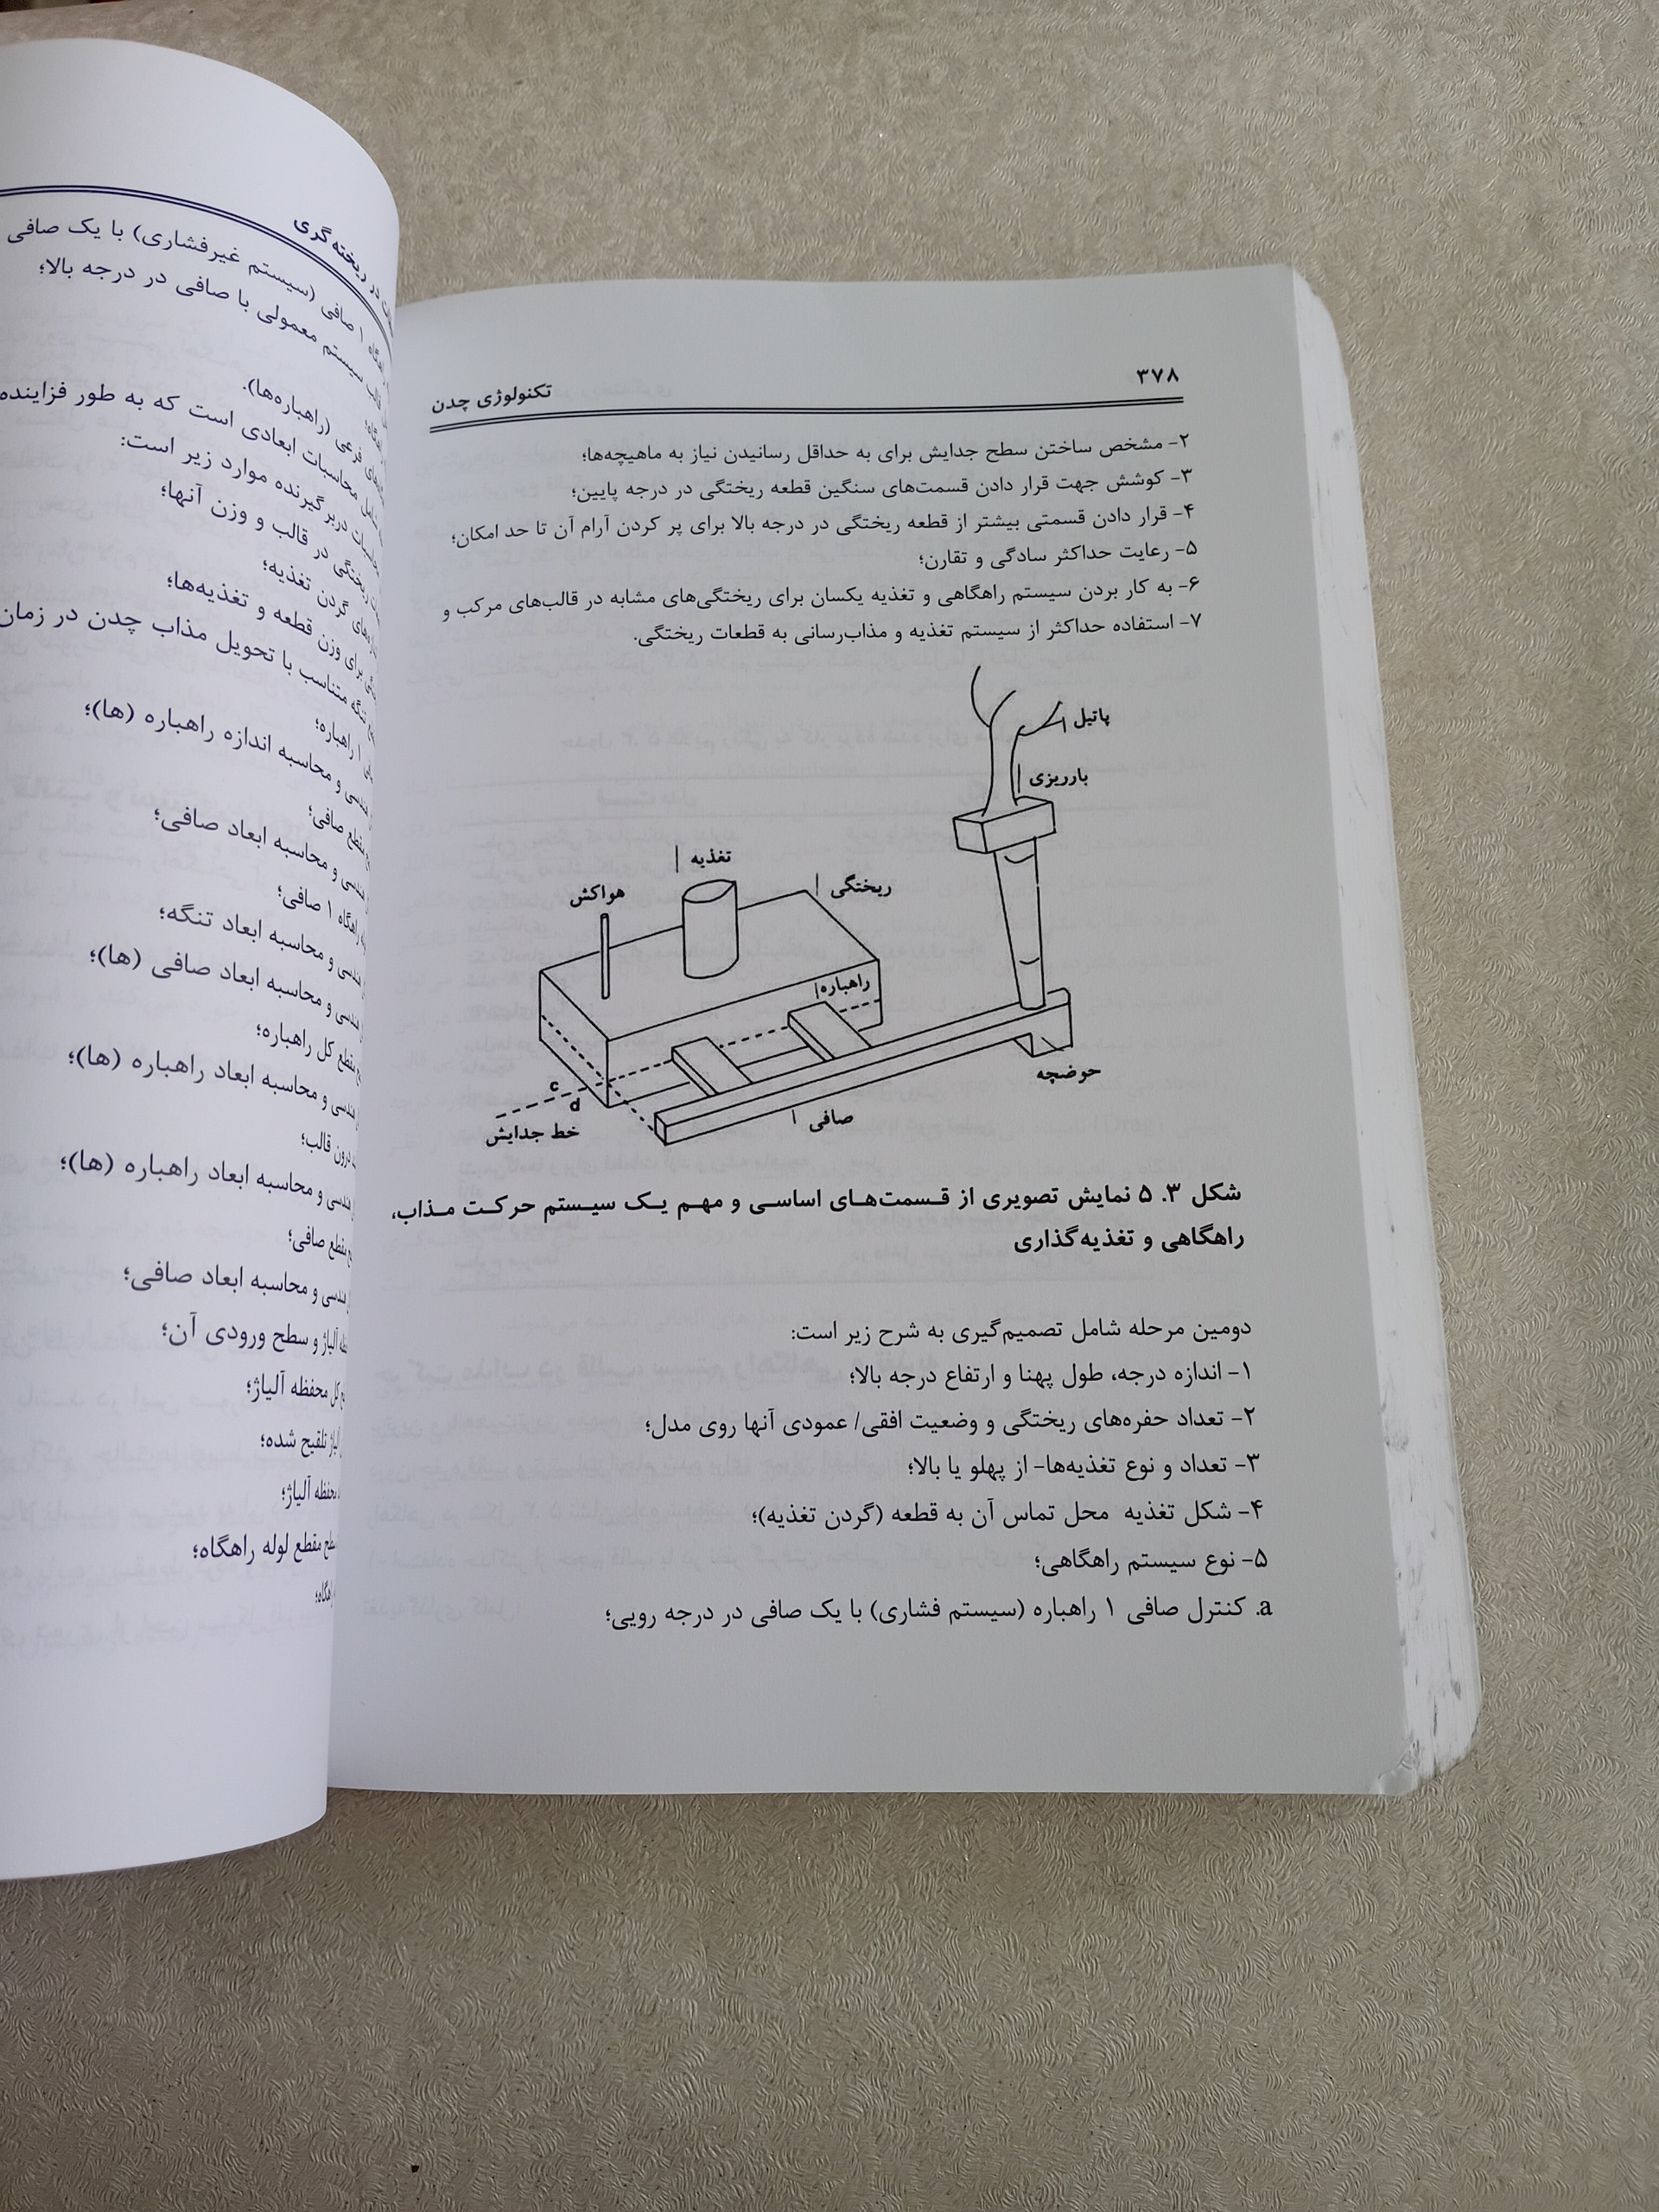 ۳۷۸
تکنولوژی چدن
۲- مشخص ساختن سطح جدایش برای به حداقل رسانیدن نیاز به ماهیچه‌ها؛
۳- کوشش جهت قرار دادن قسمت‌های سنگین قطعه ریختگی در درجه پایین؛
۴- قرار دادن قسمتی بیشتر از قطعه ریختگی در درجه بالا برای پر کردن آرام آن تا حد امکان؛
۵- رعایت حداکثر سادگی و تقارن؛
۶- به کار بردن سیستم راهگاهی و تغذیه یکسان برای ریختگی‌های مشابه در قالب‌های مرکب و
۷- استفاده حداکثر از سیستم تغذیه و مذاب‌رسانی به قطعات ریختگی.
پاتیل
بارریزی
تغذیه
ریختگی
هواکش
راهباره
حوضچه
c
d
صافی
خط جدایش
شکل ۳. ۵ نمایش تصویری از قسمت‌های اساسی و مهم یک سیستم حرکت مذاب،
راهگاهی و تغذیه‌گذاری
دومین مرحله شامل تصمیم‌گیری به شرح زیر است:
۱- اندازه درجه، طول پهنا و ارتفاع درجه بالا؛
۲- تعداد حفره‌های ریختگی و وضعیت افقی/ عمودی آنها روی مدل؛
۳- تعداد و نوع تغذیه‌ها- از پهلو یا بالا؛
۴- شکل تغذیه محل تماس آن به قطعه (گردن تغذیه)؛
۵- نوع سیستم راهگاهی؛
a. کنترل صافی ۱ راهباره (سیستم فشاری) با یک صافی در درجه رویی؛
در ریخته‌گری
۱ صافی (سیستم غیرفشاری) با یک صافی
سیستم معمولی با صافی در درجه بالا؛
فرعی (راهباره‌ها).
محاسبات ابعادی است که به طور فزاینده
دربرگیرنده موارد زیر است:
ریختگی در قالب و وزن آنها؛
گردن تغذیه؛
برای وزن قطعه و تغذیه‌ها؛
متناسب با تحویل مذاب چدن در زمان
۱ راهباره؛
و محاسبه اندازه راهباره (ها)؛
مقطع صافی؛
و محاسبه ابعاد صافی؛
راهگاه ۱ صافی؛
و محاسبه ابعاد تنگه؛
و محاسبه ابعاد صافی (ها)؛
مقطع کل راهباره؛
و محاسبه ابعاد راهباره (ها)؛
درون قالب؛
و محاسبه ابعاد راهباره (ها)؛
مقطع صافی؛
و محاسبه ابعاد صافی؛
آلیاژ و سطح ورودی آن؛
کل محفظه آلیاژ؛
تلقیح شده؛
محفظه آلیاژ؛
مقطع لوله راهگاه؛